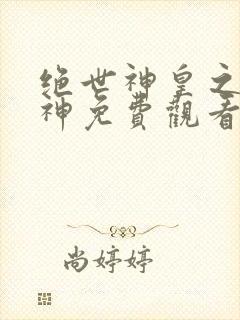 绝世神皇之
神免費觀看
尚婷婷